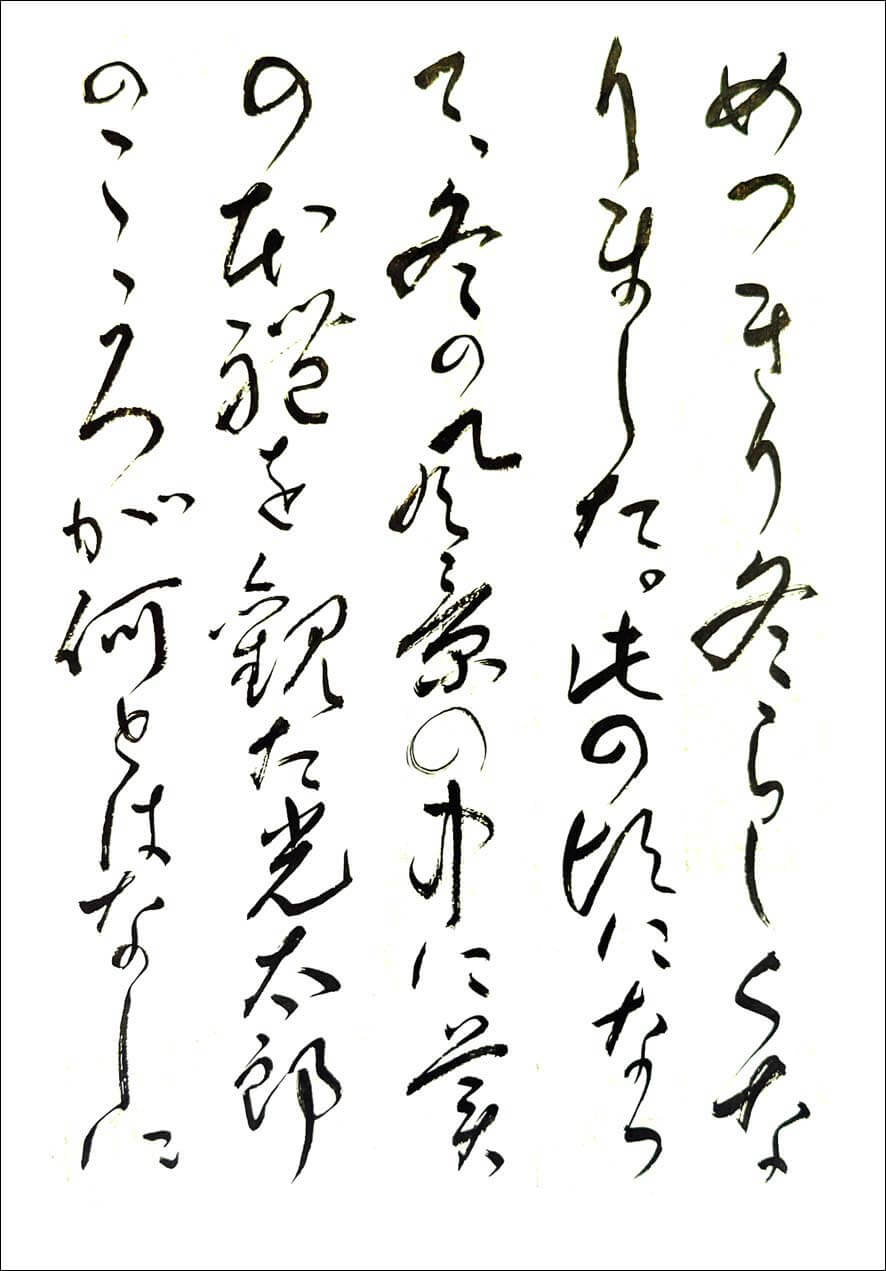 めつきり冬らしくな
りました。此の頃になつ
て、冬の風景の中に美
の本體を観た光太郎
のこゝろが何とはなしに